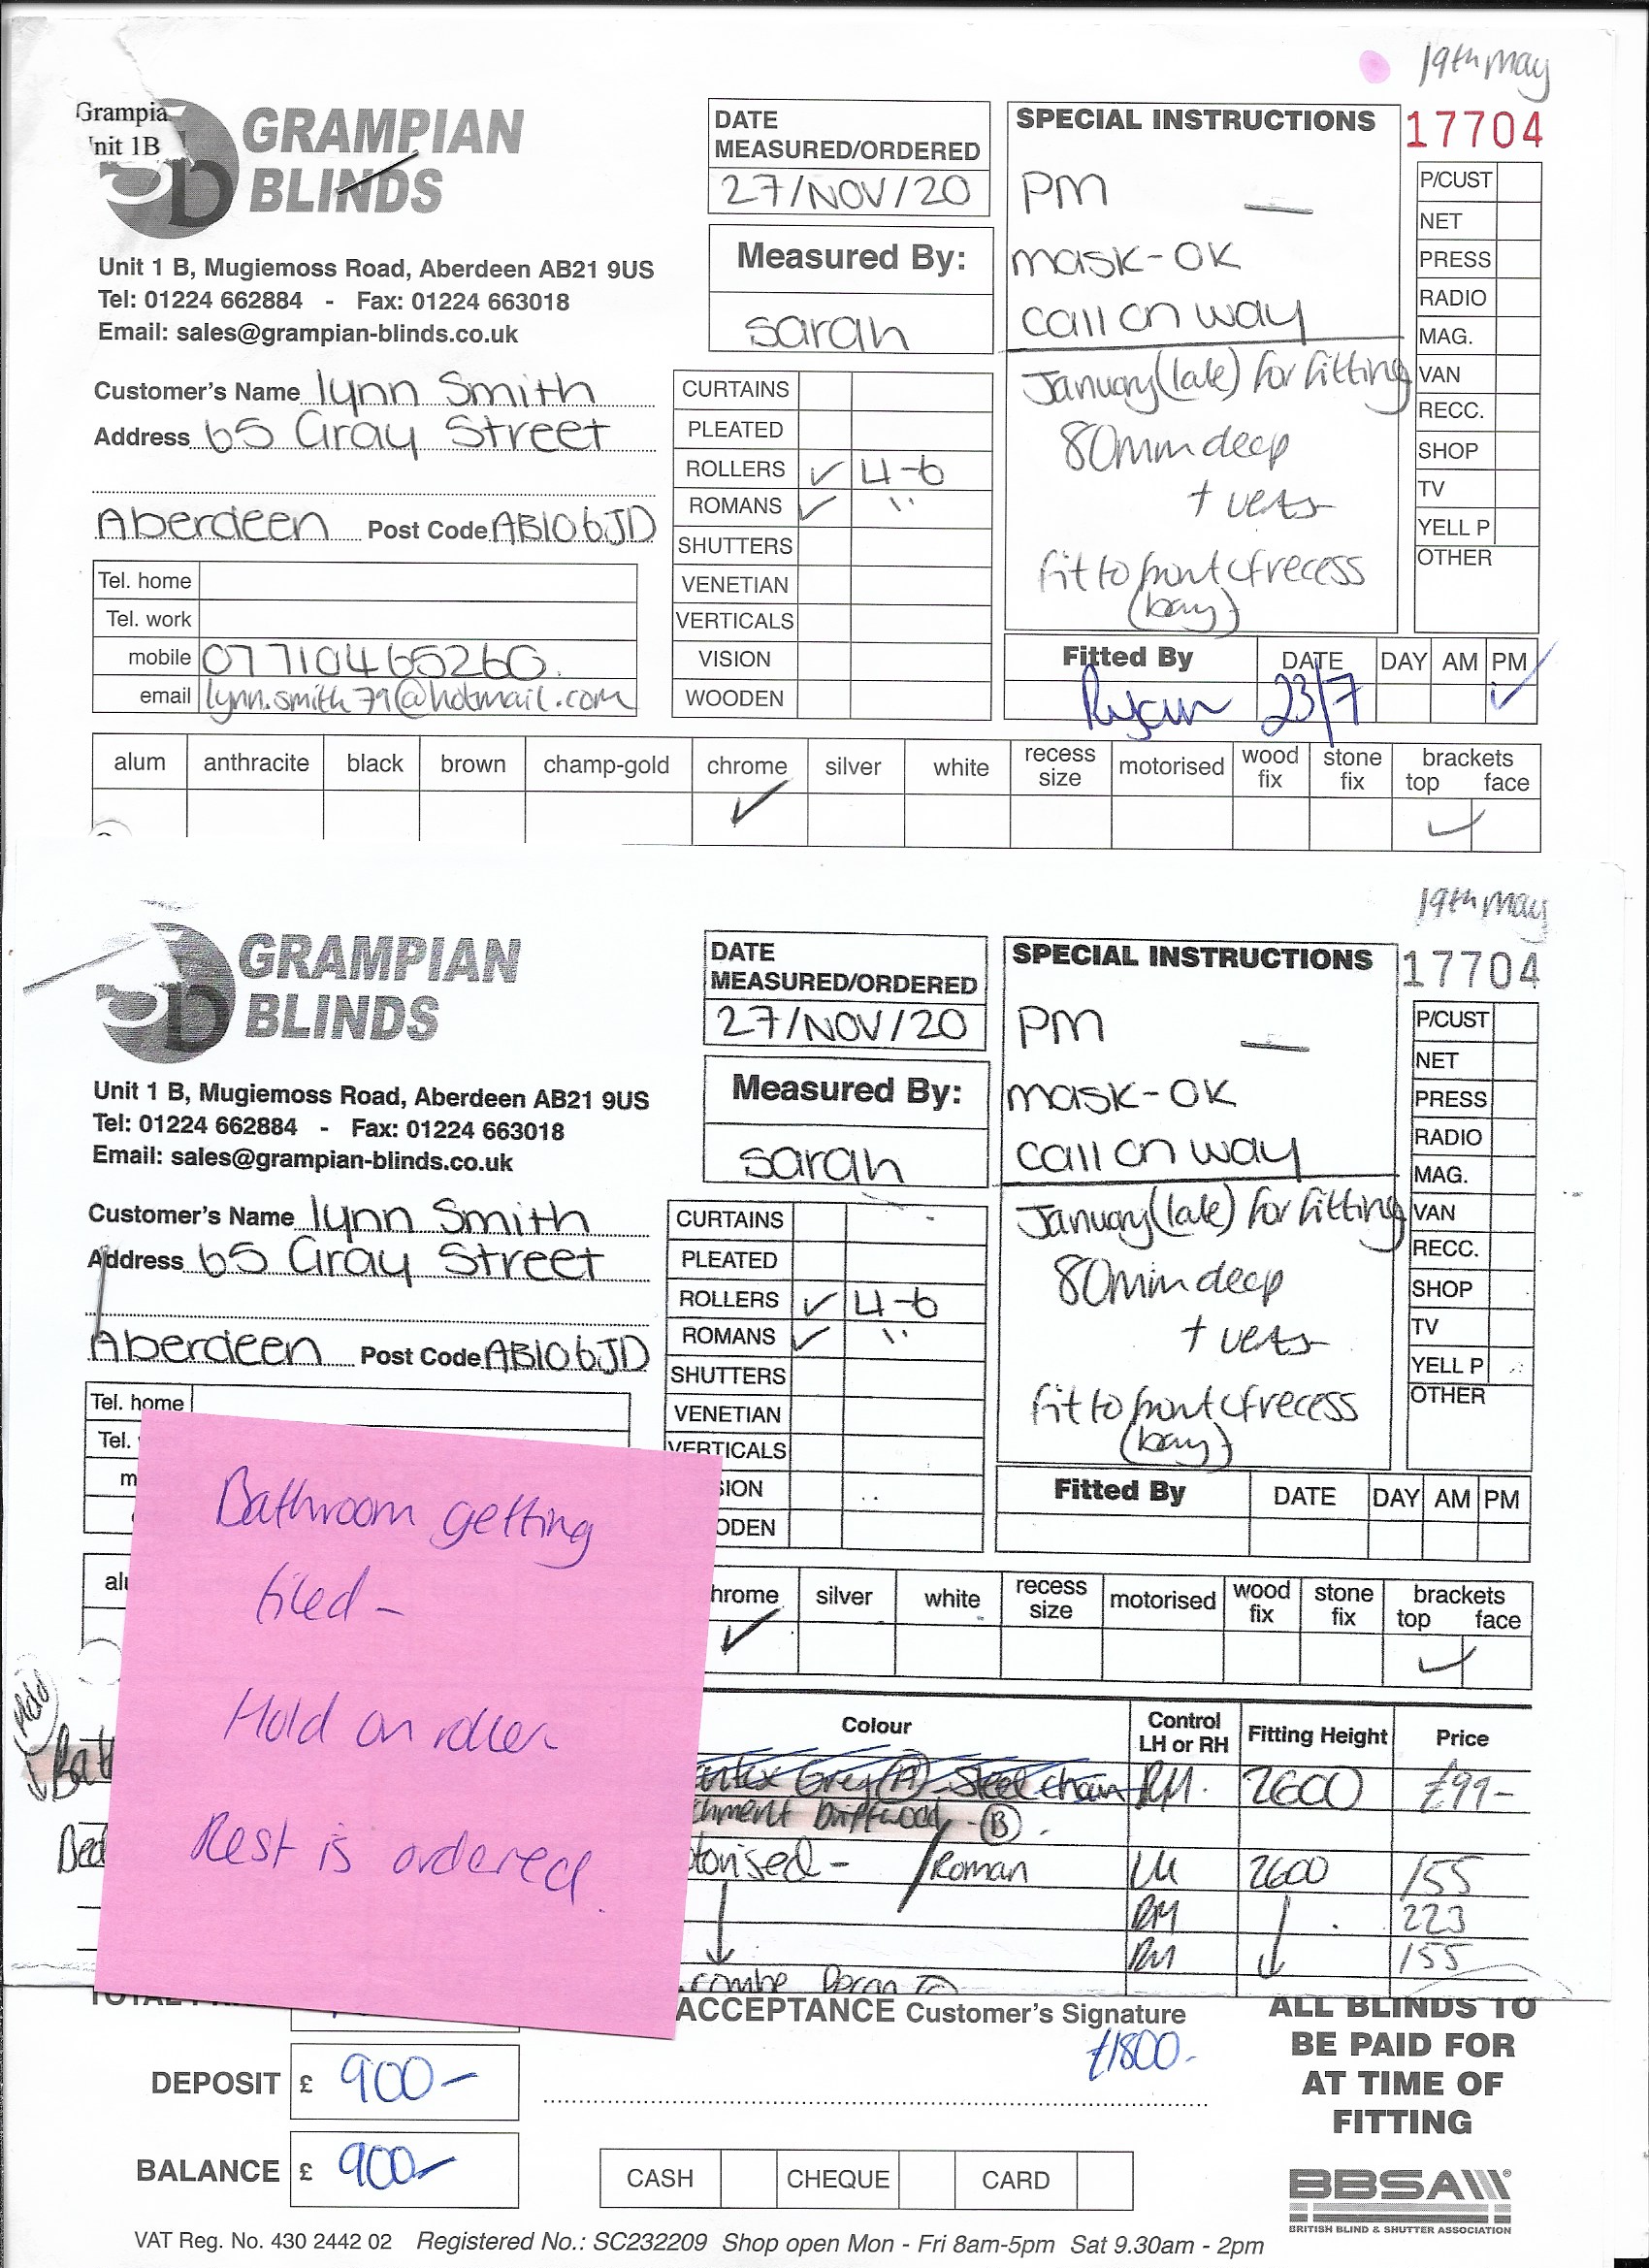 19th May
Grampia
nit 1B
GRAMPIAN
BLINDS
Unit 1 B, Mugiemoss Road, Aberdeen AB21 9US
Tel: 01224 662884 - Fax: 01224 663018
Email: sales@grampian-blinds.co.uk
DATE
MEASURED/ORDERED
27/NOV/20
Measured By:
Sarah
SPECIAL INSTRUCTIONS
PM
mask-OK
call on way
January (late) for fitting
80mm deep
+ vents
fit to front of recess
(bay)
17704
P/CUST
NET
PRESS
RADIO
MAG.
VAN
RECC.
SHOP
TV
YELL P
OTHER
Customer's Name lynn Smith
Address 65 Gray Street
Aberdeen Post Code AB10 6JD
Tel. home
Tel. work
mobile 07710465260.
email lynn.smith79@hotmail.com
CURTAINS
PLEATED
ROLLERS ✓ 4-6
ROMANS ✓ "
SHUTTERS
VENETIAN
VERTICALS
VISION
WOODEN
Fitted By DATE DAY AM PM
Ryan 23/7 ✓
alum anthracite black brown champ-gold chrome silver white recess size motorised wood fix stone fix brackets top face
✓ ✓
19th May
GRAMPIAN
BLINDS
Unit 1 B, Mugiemoss Road, Aberdeen AB21 9US
Tel: 01224 662884 - Fax: 01224 663018
Email: sales@grampian-blinds.co.uk
DATE
MEASURED/ORDERED
27/NOV/20
Measured By:
Sarah
SPECIAL INSTRUCTIONS
PM
mask-OK
call on way
January (late) for fitting
80mm deep
+ vents
fit to front of recess
(bay)
17704
P/CUST
NET
PRESS
RADIO
MAG.
VAN
RECC.
SHOP
TV
YELL P
OTHER
Customer's Name lynn Smith
Address 65 Gray Street
Aberdeen Post Code AB10 6JD
Tel. home
Tel.
m
CURTAINS
PLEATED
ROLLERS ✓ 4-6
ROMANS ✓ "
SHUTTERS
VENETIAN
VERTICALS
SION
ODEN
Fitted By DATE DAY AM PM
Bathroom getting
tiled -
Hold on roller
Rest is ordered.
alu hrome silver white recess size motorised wood fix stone fix brackets top face
✓ ✓
Colour Control LH or RH Fitting Height Price
Hold
Bat Grey (A) Steel chain RH. 2600 £99-
chment Driftwood - (B).
Bed torised - / Roman LH 2600 155
RH 223
RH 155
combe
ACCEPTANCE Customer's Signature
£1800-
DEPOSIT £ 900-
BALANCE £ 900-
CASH CHEQUE CARD
ALL BLINDS TO
BE PAID FOR
AT TIME OF
FITTING
BBSA
BRITISH BLIND & SHUTTER ASSOCIATION
VAT Reg. No. 430 2442 02 Registered No.: SC232209 Shop open Mon - Fri 8am-5pm Sat 9.30am - 2pm